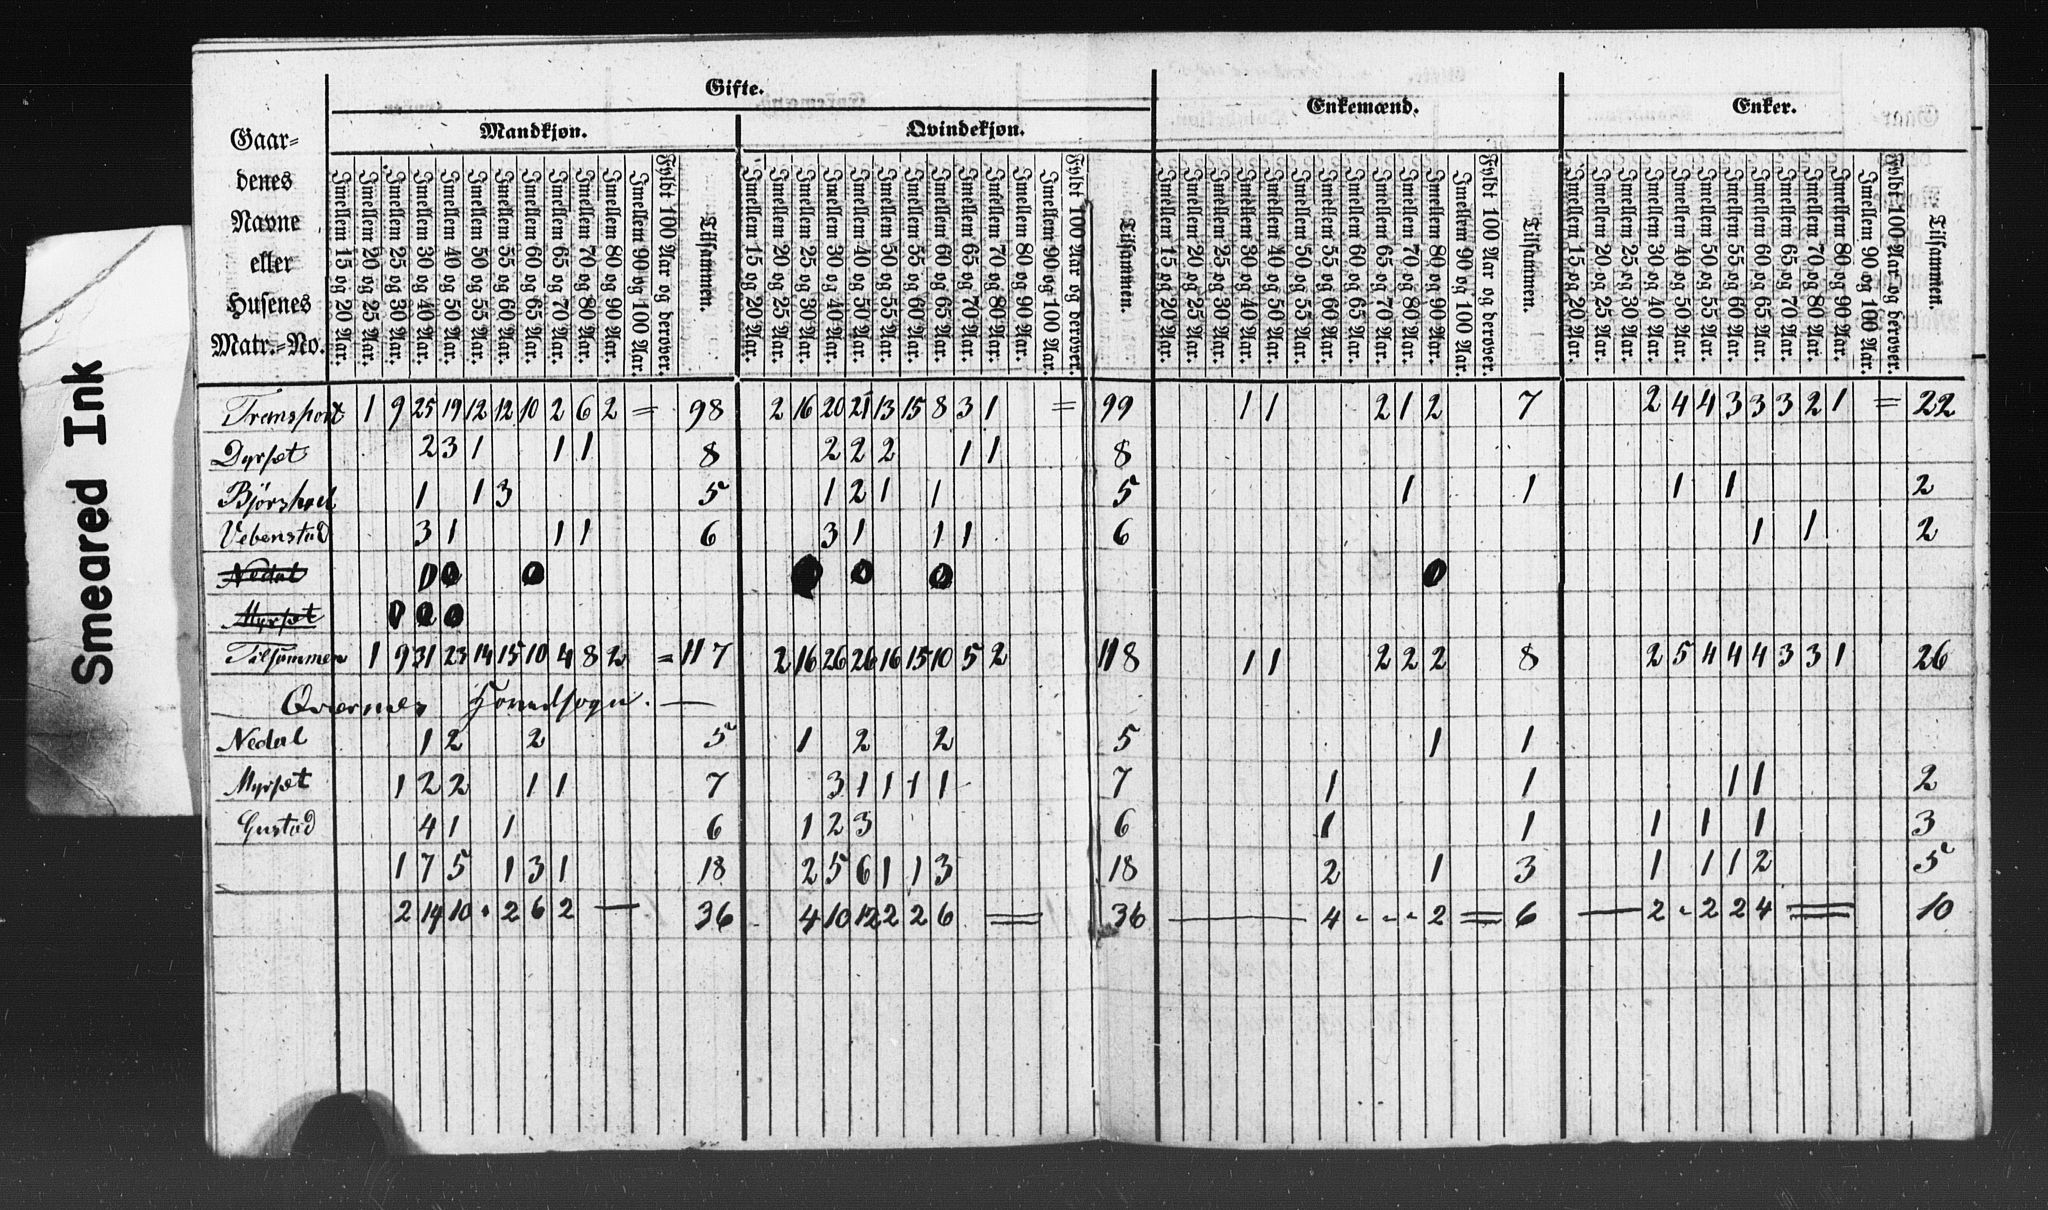 Smeared Ink
Gifte.
Enkemænd.
Enker.
Mandkjøn.
Qvindekjøn.
Gaar=
denes
Navne
eller
Husenes
Matr.-No.
Imellem 15 og 20 Aar.
Imellem 20 og 25 Aar.
Imellem 25 og 30 Aar.
Imellem 30 og 40 Aar.
Imellem 40 og 50 Aar.
Imellem 50 og 55 Aar.
Imellem 55 og 60 Aar.
Imellem 60 og 65 Aar.
Imellem 65 og 70 Aar.
Imellem 70 og 80 Aar.
Imellem 80 og 90 Aar.
Imellem 90 og 100 Aar.
Fyldt 100 Aar og derover.
Tilsammen.
Imellem 15 og 20 Aar.
Imellem 20 og 25 Aar.
Imellem 25 og 30 Aar.
Imellem 30 og 40 Aar.
Imellem 40 og 50 Aar.
Imellem 50 og 55 Aar.
Imellem 55 og 60 Aar.
Imellem 60 og 65 Aar.
Imellem 65 og 70 Aar.
Imellem 70 og 80 Aar.
Imellem 80 og 90 Aar.
Imellem 90 og 100 Aar.
Fyldt 100 Aar og derover.
Tilsammen.
Imellem 15 og 20 Aar.
Imellem 20 og 25 Aar.
Imellem 25 og 30 Aar.
Imellem 30 og 40 Aar.
Imellem 40 og 50 Aar.
Imellem 50 og 55 Aar.
Imellem 55 og 60 Aar.
Imellem 60 og 65 Aar.
Imellem 65 og 70 Aar.
Imellem 70 og 80 Aar.
Imellem 80 og 90 Aar.
Imellem 90 og 100 Aar.
Fyldt 100 Aar og derover.
Tilsammen.
Imellem 15 og 20 Aar.
Imellem 20 og 25 Aar.
Imellem 25 og 30 Aar.
Imellem 30 og 40 Aar.
Imellem 40 og 50 Aar.
Imellem 50 og 55 Aar.
Imellem 55 og 60 Aar.
Imellem 60 og 65 Aar.
Imellem 65 og 70 Aar.
Imellem 70 og 80 Aar.
Imellem 80 og 90 Aar.
Imellem 90 og 100 Aar.
Fyldt 100 Aar og derover.
Tilsammen.
Transport 1 9 25 19 12 12 10 2 6 2 = 98 2 16 20 21 13 15 8 3 1 = 99 1 1 2 1 2 7 2 4 4 3 3 3 2 1 = 22
Dyrsæt 2 3 1 1 1 8 2 2 2 1 1 8
1 1 3 5 1 2 1 1 5 1 1 1 1 2
Vebenstad 3 1 1 1 6 3 1 1 1 6 1 1 2
Nedal
Myrsæt
Tilsammen 1 9 31 23 14 15 10 4 8 2 = 117 2 16 26 26 16 15 10 5 2 118 1 1 2 2 2 8 2 5 4 4 4 3 3 1 26
Qvernes Hovedsogn. —
Nedal 1 2 2 5 1 2 2 5 1 1
Myrsæt 1 2 2 1 1 7 3 1 1 1 1 7 1 1 1 1 2
Gustad 4 1 1 6 1 2 3 6 1 1 1 1 1 3
1 7 5 1 3 1 18 2 5 6 1 1 3 18 2 1 3 1 1 1 2 5
2 14 10 · 2 6 2 — 36 4 10 12 2 2 6 = 36 — 4 - - - 2 = 6 — 2 - 2 2 4 = 10